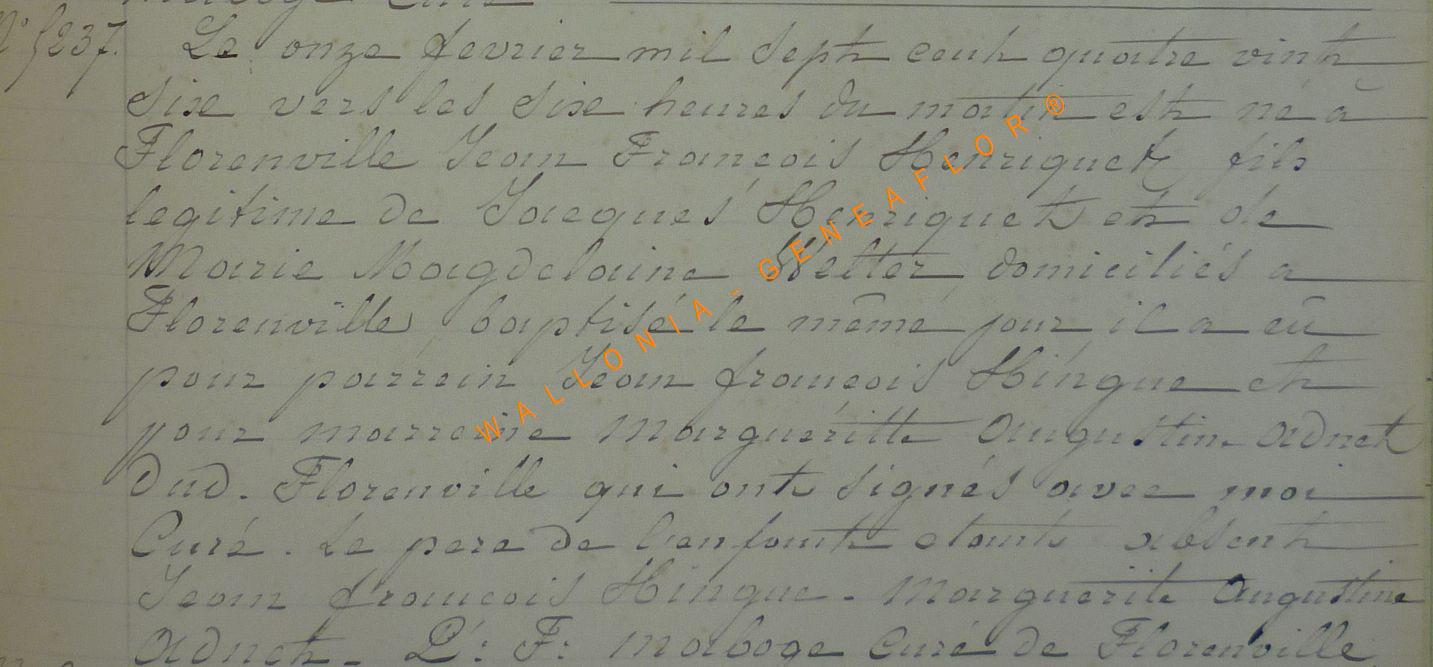 N° 5237.
Le onze fevrier mil sept cent quatre vint
sixe vers les sixe heures du matin est né à
Florenville Jean François Henriquet, fils
legitime de Jacques Henriquet et de
Marie Magdelaine Welter, domiciliés a
Florenville, baptisé le même jour il a eû
pour parrein Jean françois Hingue et
pour marreine Marguéritte Augustine Adnet
dud. Florenville qui ont signés avec moi
Curé. Le pere de l'enfant etant absent
Jean françois Hingue - Marguerite Augustine
Adnet - P: F: Maboge Curé de Florenville
WALLONIA - GENEAFLOR ®